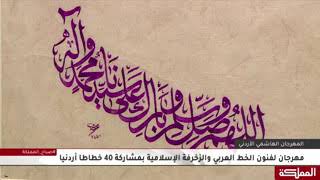 اللهم صل وسلم وبارك على نبينا محمد وآله
المهرجان الهاشمي الأردني
#صباح_المملكة
مهرجان لفنون الخط العربي والزخرفة الإسلامية بمشاركة 40 خطاطا أردنيا
المملكة